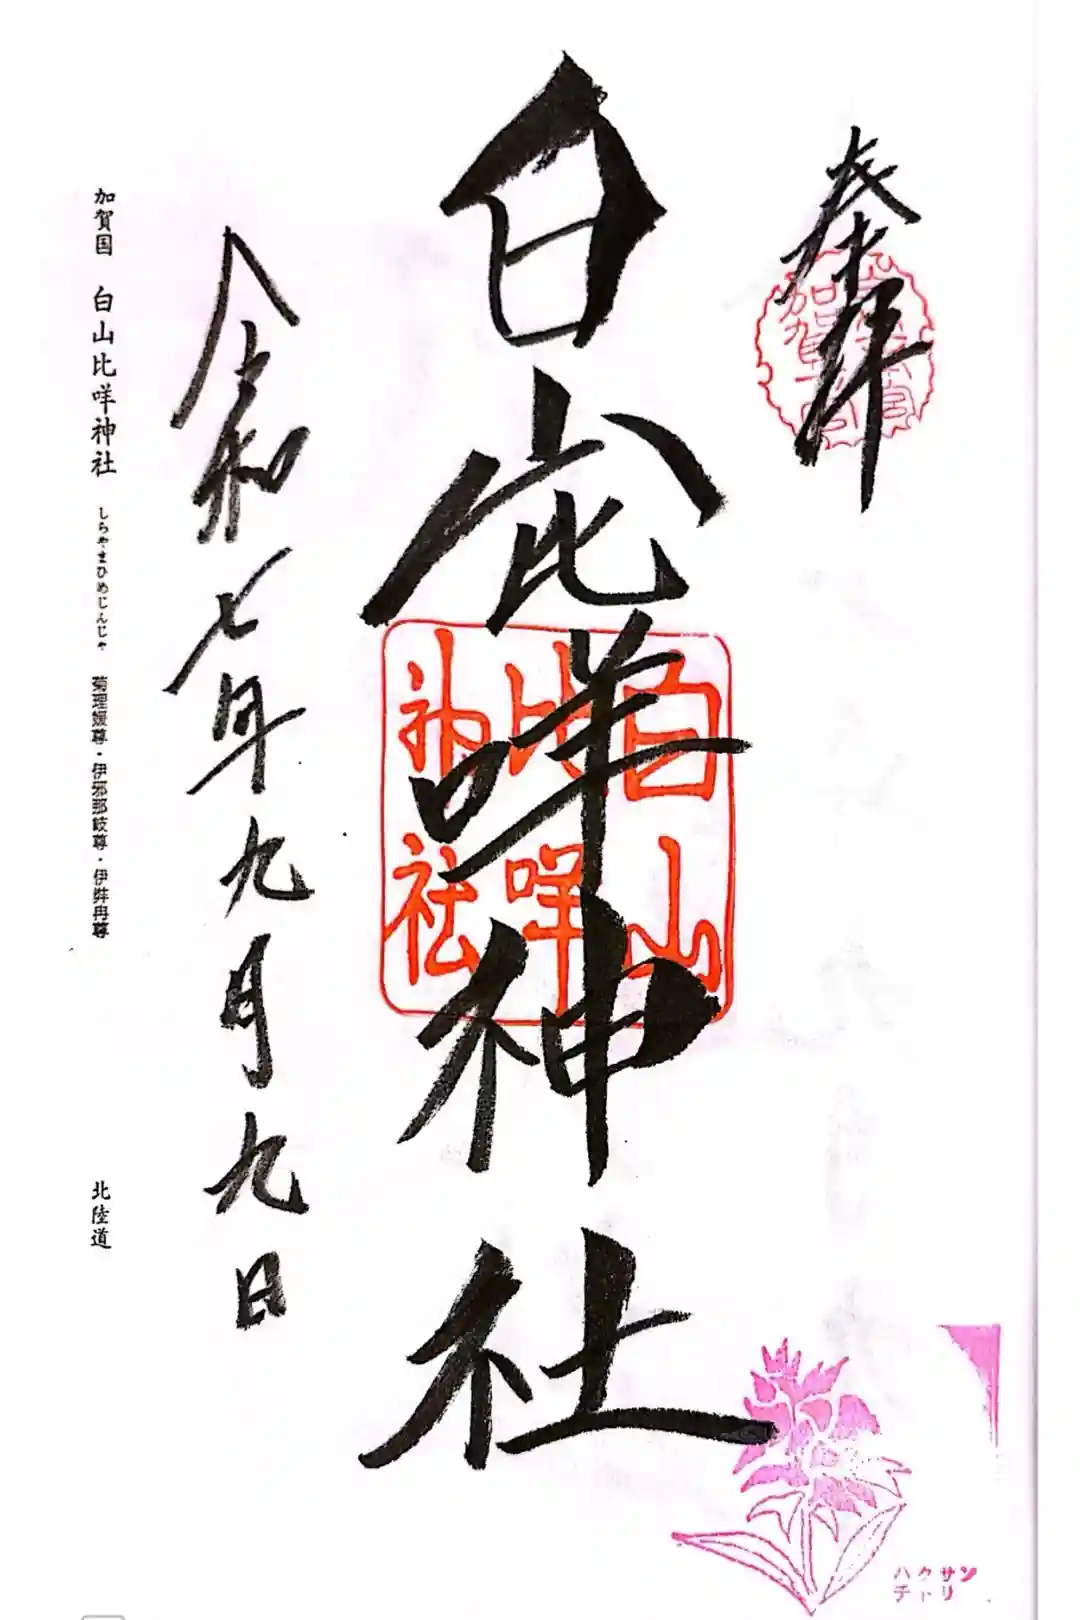 奉拝
白山比咩神社
白山比咩神社
令和七年九月九日
加賀国 白山比咩神社 しらやまひめじんじゃ 菊理媛尊・伊邪那岐尊・伊弉冉尊 北陸道
ハクサン
チドリ